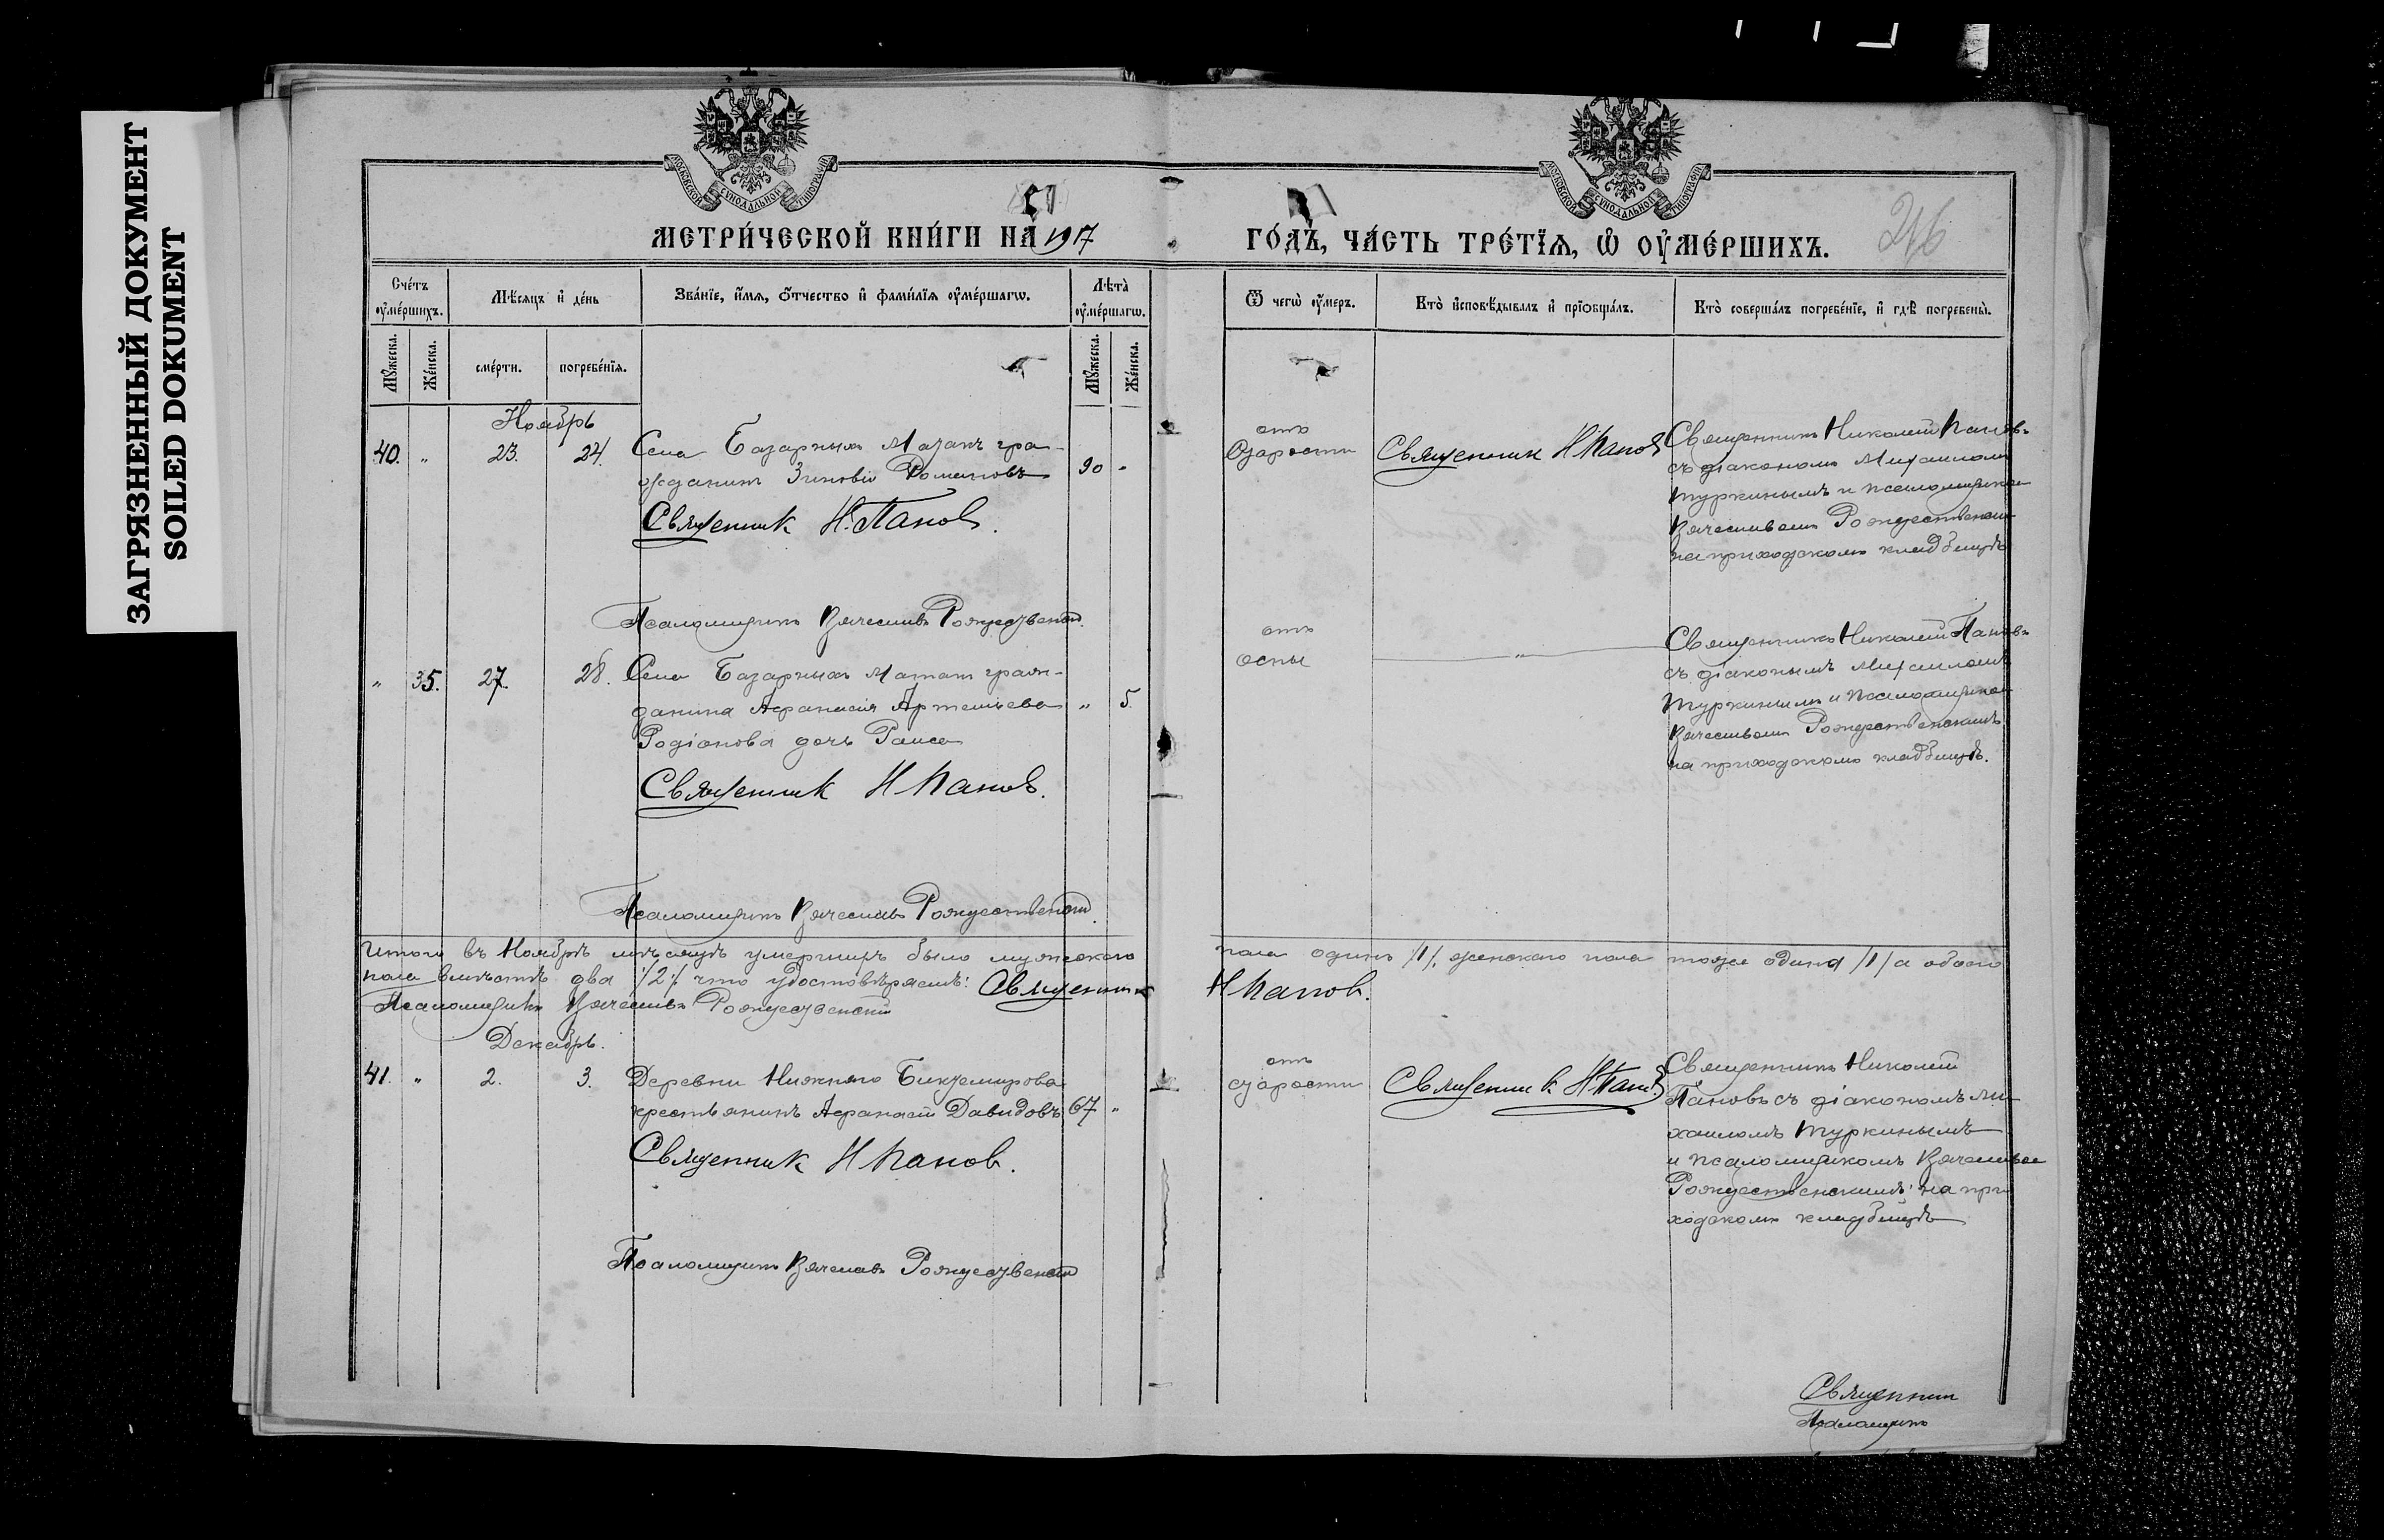 ЗАГРЯЗНЕННЫЙ ДОКУМЕНТ
SOILED DOKUMENT
МОСКОВСКОЙ СѴНОДАЛЬНОЙ ТИПОГРАФІИ
МОСКОВСКОЙ СѴНОДАЛЬНОЙ ТИПОГРАФІИ
МЕТРИ́ЧЕСКОЙ КНИ́ГИ НА́ 1917
ГО́ДЪ, ЧА́СТЬ ТРЕ́ТЇѦ, Ѽ ОУ҆МЕ́РШИХЪ.
Сче́тъ оу҆ме́ршихъ.
Мѣ́сяцъ и҆ де́нь
Зва́нїе, и҆́мѧ, ѻ҆́тчество и҆ фами́лїѧ оу҆ме́ршагѡ.
Лѣ́та̀ оу҆ме́ршагѡ.
Ѿ чегѡ̀ оу҆́меръ.
Кто̀ и҆сповѣ́дывалъ и҆ прїѡбща́лъ.
Кто̀ соверша́лъ погребе́нїе, и҆ гдѣ̀ погребены̀.
Мꙋ́жеска.
Же́нска.
сме́рти.
погребе́нїѧ.
Мꙋ́жеска.
Же́нска.
Ноябрь
40. " 23. 24. Села Базарныхъ Матакъ гра-
жданинъ Зиновій Романовъ 90 "
Священник Н. Панов.
Псаломщикъ Вячеславъ Рождественскій
отъ
старости
Священник Н Панов
Священникъ Николай Пановъ
съ діакономъ Михаиломъ
Туркинымъ и псаломщикомъ
Вячеславомъ Рождественским
на приходскомъ кладбищѣ
" 35. 27. 28. Села Базарныхъ Матакъ граж-
данина Афанасія Артемьева " 5.
Родіонова дочь Раиса
Священник Н Панов.
Псаломщикъ Вячеславъ Рождественскій
отъ
оспы
"
Священникъ Николай Пановъ
съ діаконымъ Михаиломъ
Туркинымъ и псаломщикомъ
Вячеславомъ Рождественскимъ
на приходскомъ кладбищѣ.
Итого въ Ноябрѣ мѣсяцѣ умершихъ было мужского
пола одинъ /1/, женскаго пола тоже одинъ /1/ а обоего
пола вмѣстѣ два /2/ что удостовѣряемъ: Священник
Н Панов.
Псаломщикъ Вячеславъ Рождественскій
Декабрь.
41. " 2. 3. Деревни Нижняго Биктемирова
крестьянинъ Афанасій Давидовъ 67 "
Священник Н Панов.
Псаломщикъ Вячеславъ Рождественскій
отъ
старости
Священник Н Панов
Священникъ Николай
Пановъ съ діакономъ Ми-
хаиломъ Туркинымъ
и псаломщикомъ Вячеславом
Рождественскимъ на при-
ходскомъ кладбищѣ
Священник
Псаломщикъ